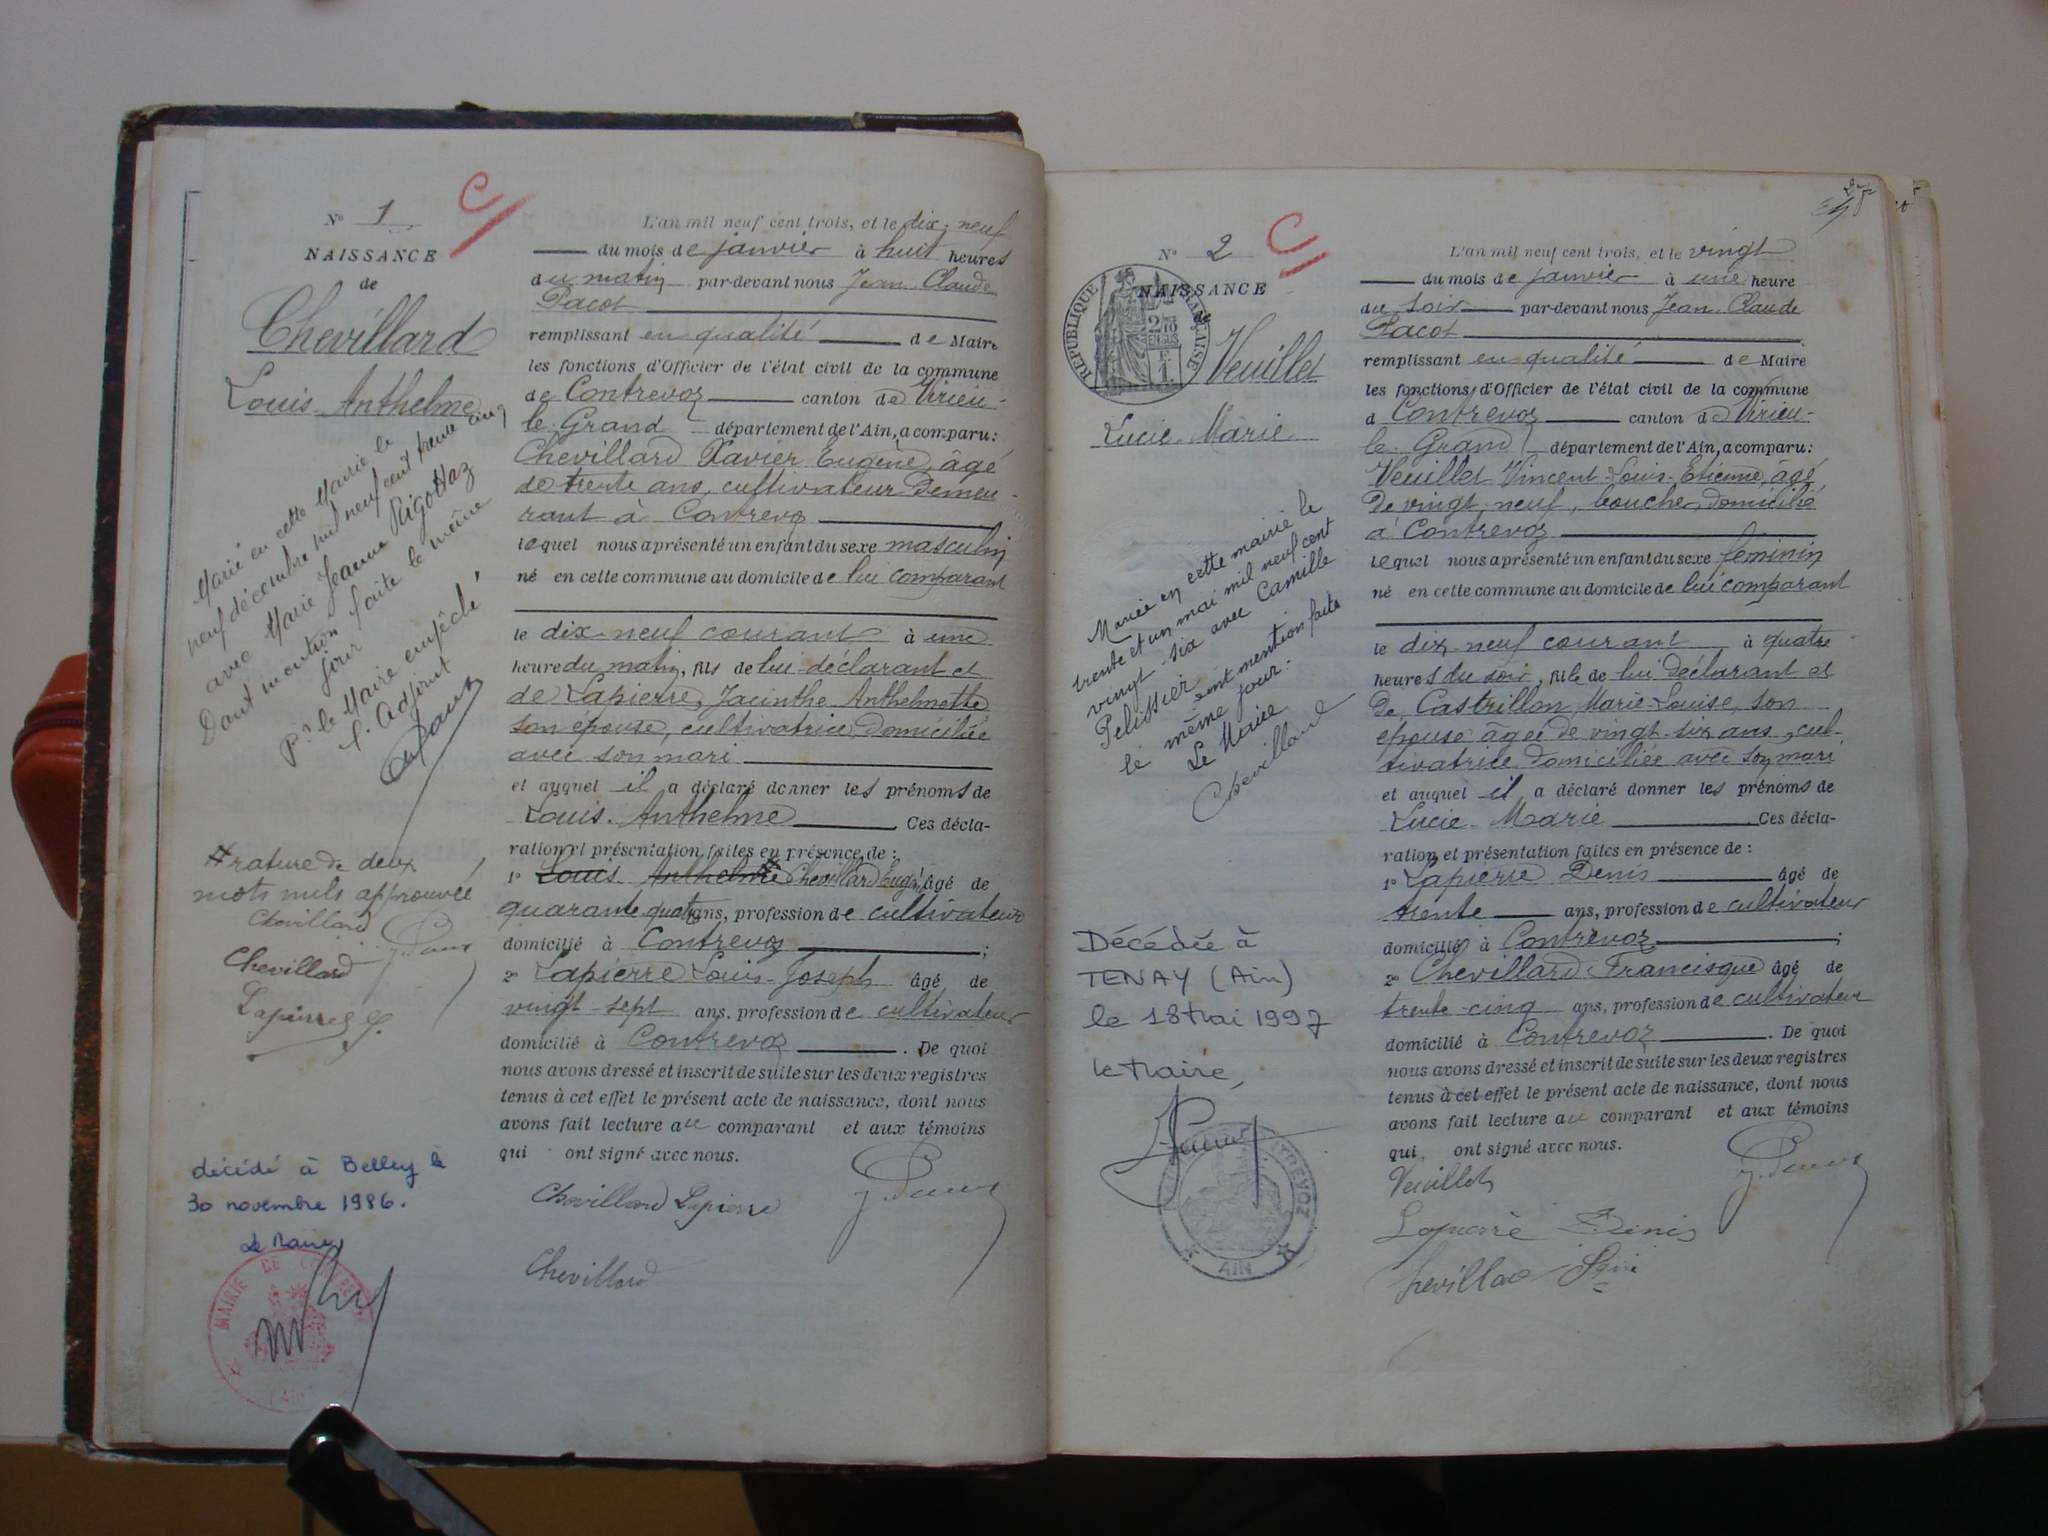 N° 1
NAISSANCE
de
Chevillard
Louis Anthelme
Marié en cette Mairie le
neuf décembre mil neuf cent trente cinq
avec Marie Jeanne Rigottaz
Dont mention faite le même
jour
Pr le Maire empêché,
l'adjoint
# rature de deux
mots nuls approuvée
Chevillard
Chevillard
Lapierre
décédé à Belley le
30 novembre 1986.
Le Maire
MAIRIE DE
AIN
L'an mil neuf cent trois, et le dix-neuf
du mois de janvier à huit heures
du matin par-devant nous Jean-Claude
Pacot
remplissant en qualité de Maire
les fonctions d'Officier de l'état civil de la commune
de Contrevoz canton de Virieu-
le-Grand département de l'Ain, a comparu:
Chevillard Xavier Eugène, âgé
de trente ans, cultivateur demeu-
rant à Contrevoz
lequel nous a présenté un enfant du sexe masculin
né en cette commune au domicile de lui comparant
le dix-neuf courant à une
heure du matin, fils de lui déclarant et
de Lapierre, Jacinthe Anthelmette
son épouse, cultivatrice domiciliée
avec son mari
et auquel il a déclaré donner les prénoms de
Louis-Anthelme Ces décla-
ration et présentation faites en présence de:
1° Louis Anthelme # Chevillard Eugène âgé de
quarante quatre ans, profession de cultivateur
domicilié à Contrevoz ;
2° Lapierre Louis-Joseph âgé de
vingt-sept ans, profession de cultivateur
domicilié à Contrevoz . De quoi
nous avons dressé et inscrit de suite sur les deux registres
tenus à cet effet le présent acte de naissance, dont nous
avons fait lecture au comparant et aux témoins
qui ont signé avec nous.
Chevillard Lapierre
Chevillard
N° 2
NAISSANCE
RÉPUBLIQUE FRANÇAISE
2/10 EN SUS
Veuillet
Lucie-Marie
Mariée en cette mairie le
trente et un mai mil neuf cent
vingt-six avec Camille
Pelissier dont mention faite
le même jour.
Le Maire
Chevillard
Décédée à
TENAY (Ain)
le 18 Mai 1997
Le Maire,
CONTREVOZ
AIN
L'an mil neuf cent trois, et le vingt
du mois de janvier à une heure
du soir par-devant nous Jean-Claude
Pacot
remplissant en qualité de Maire
les fonctions d'Officier de l'état civil de la commune
d Contrevoz canton de Virieu-
le-Grand département de l'Ain, a comparu:
Veuillet Vincent-Louis-Etienne, âgé
de vingt-neuf, boucher, domicilié
à Contrevoz
lequel nous a présenté un enfant du sexe féminin
né en cette commune au domicile de lui comparant
le dix-neuf courant à quatre
heures du soir, fille de lui déclarant et
de Castrillon Marie-Louise, son
épouse âgée de vingt-six ans, cul-
tivatrice domiciliée avec son mari
et auquel il a déclaré donner les prénoms de
Lucie-Marie Ces décla-
ration et présentation faites en présence de:
1° Lapierre Denis âgé de
trente ans, profession de cultivateur
domicilié à Contrevoz ;
2° Chevillard Francisque âgé de
trente-cinq ans, profession de cultivateur
domicilié à Contrevoz . De quoi
nous avons dressé et inscrit de suite sur les deux registres
tenus à cet effet le présent acte de naissance, dont nous
avons fait lecture au comparant et aux témoins
qui ont signé avec nous.
Veuillet
Lapierre Denis